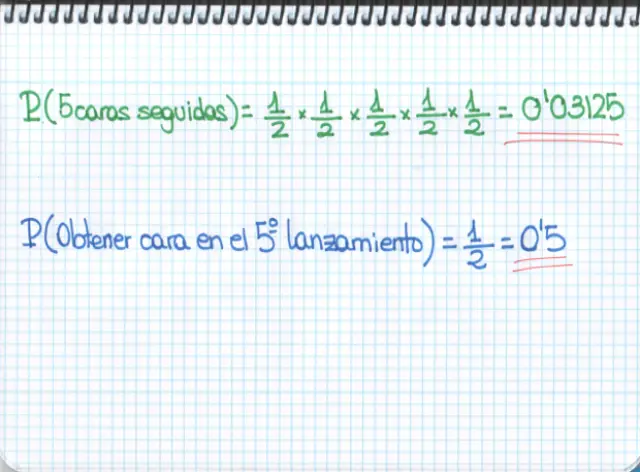 P(5 caras seguidas) = 1/2 × 1/2 × 1/2 × 1/2 × 1/2 = 0'03125
P(Obtener cara en el 5º lanzamiento) = 1/2 = 0'5